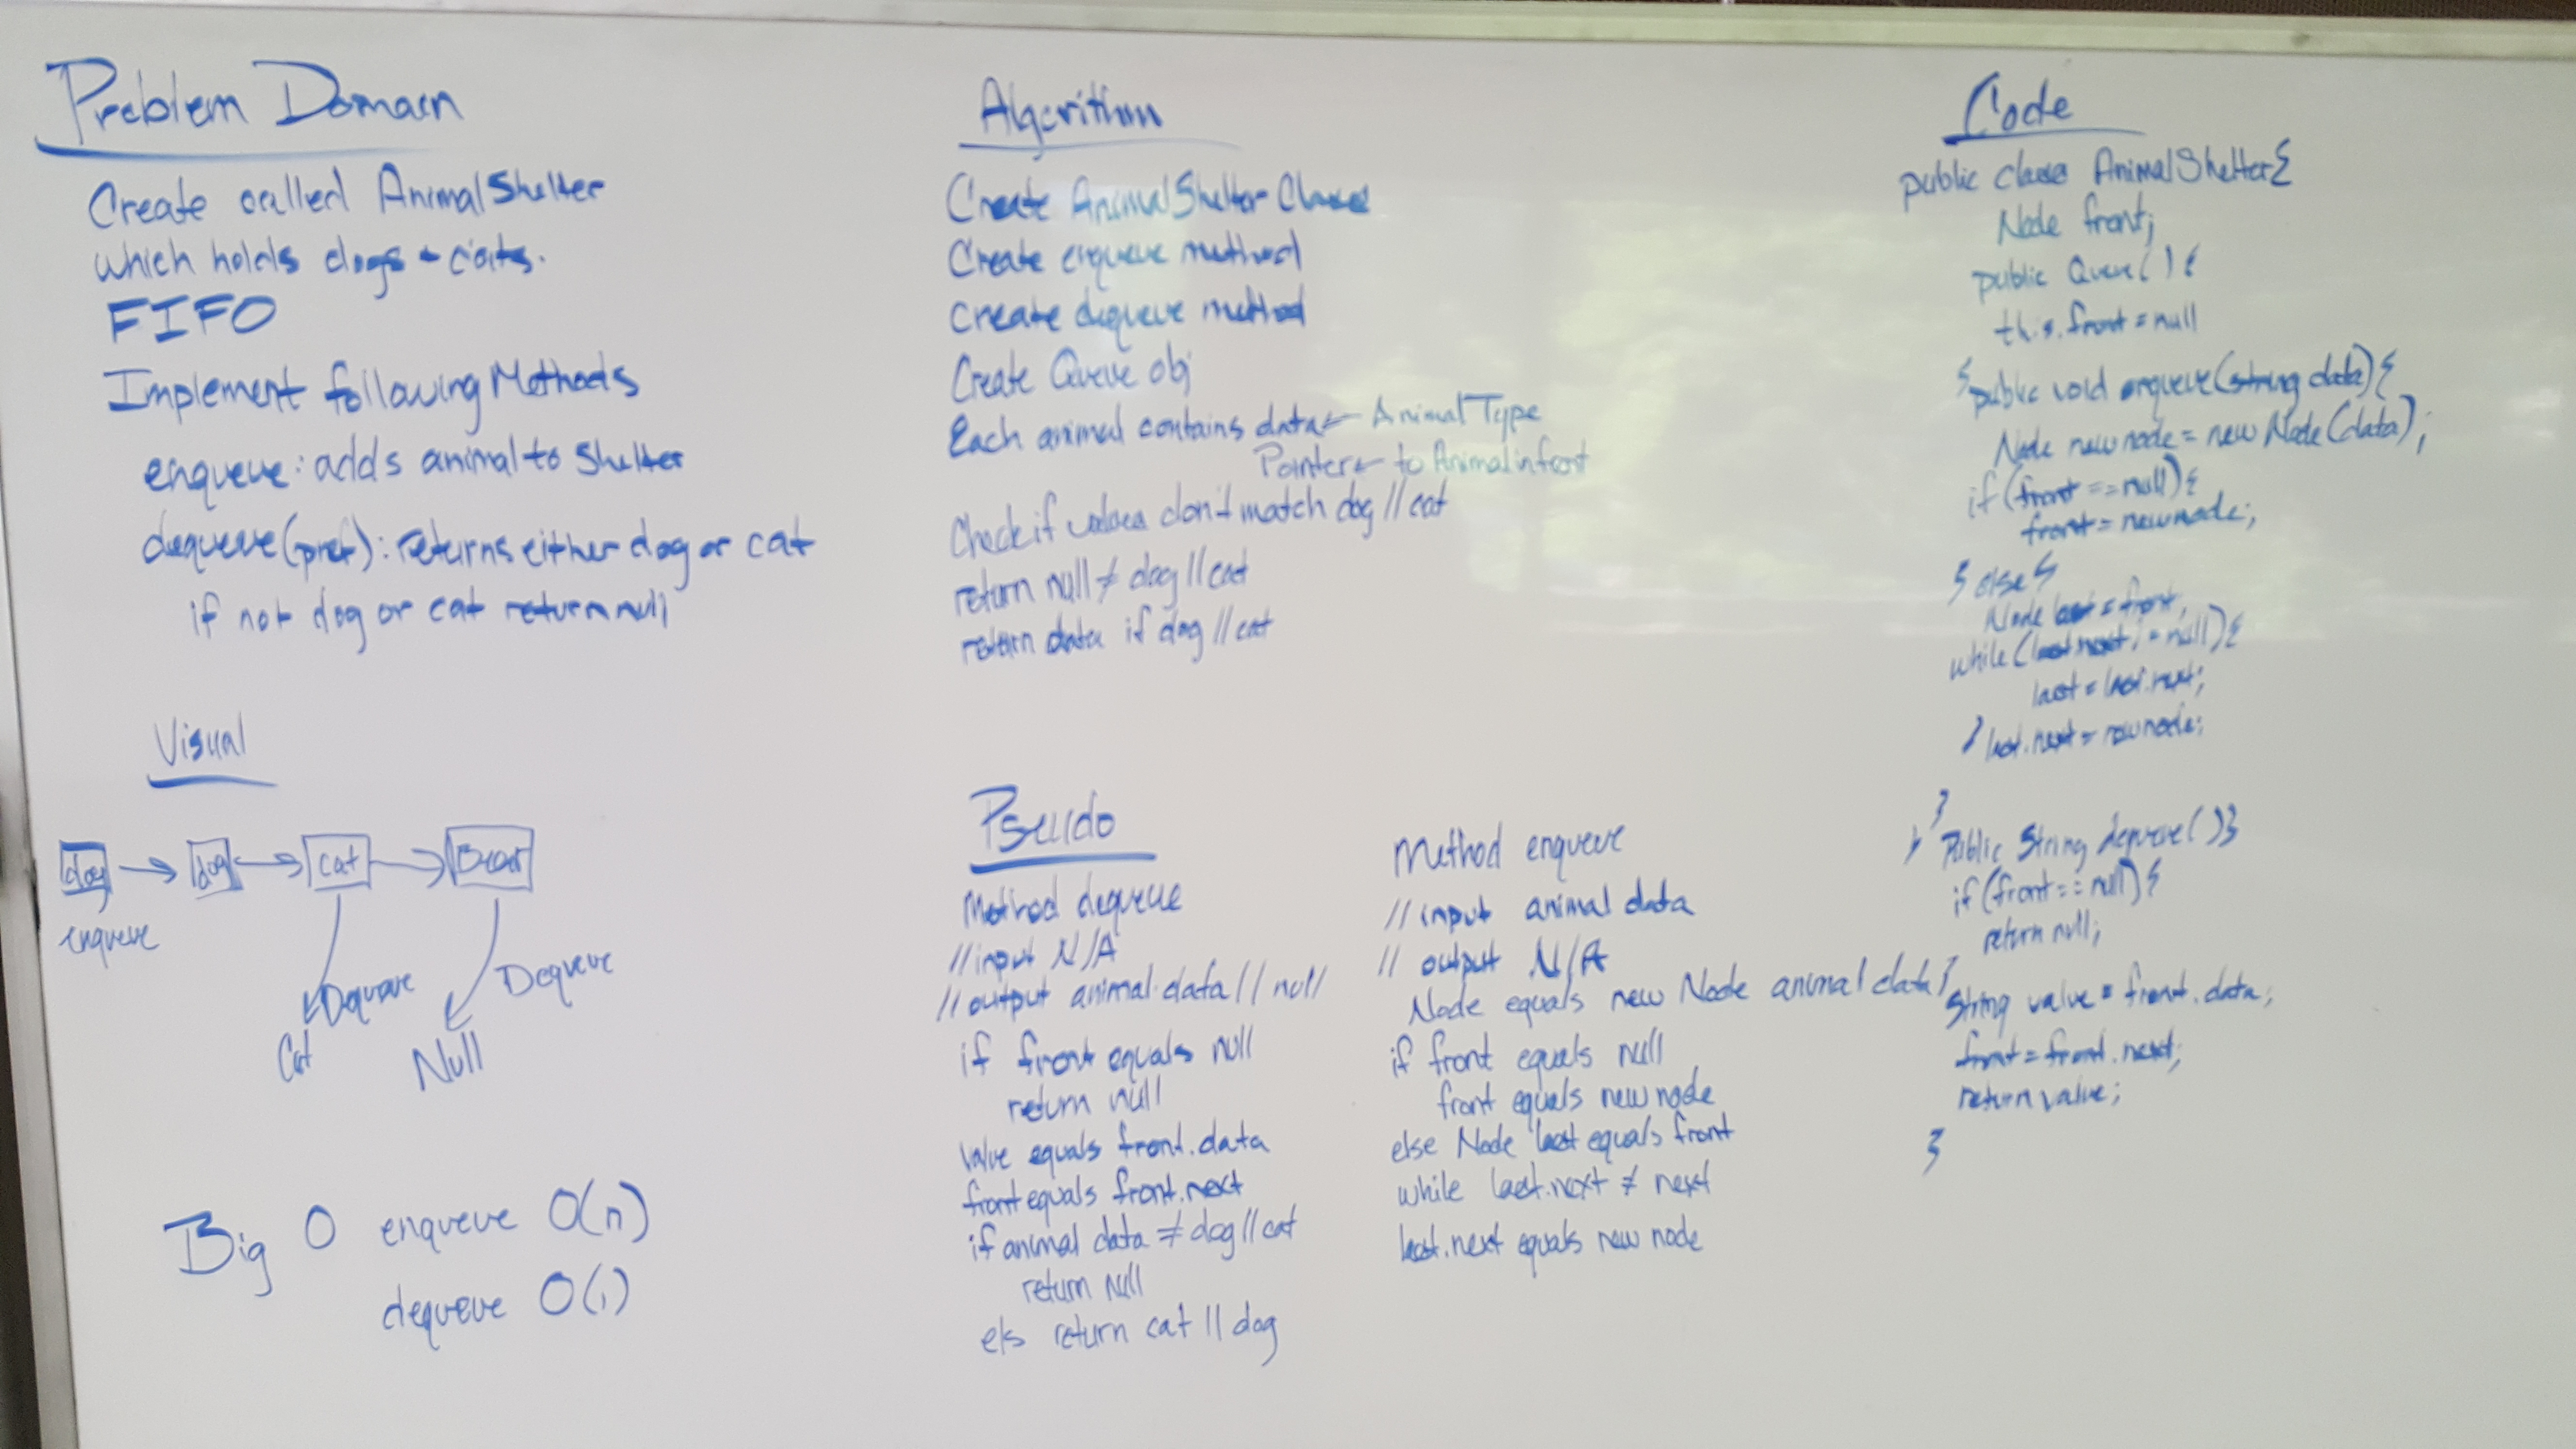 Problem Domain
Create called AnimalShelter
which holds dogs + cats.
FIFO
Implement following Methods
enqueue: adds animal to shelter
dequeue(pref): returns either dog or cat
if not dog or cat return null
Visual
dog → dog → cat → Bear
enqueue
Dequeue
Dequeue
Cat
Null
Big O enqueue O(n)
dequeue O(1)
Algorithm
Create AnimalShelter Class
Create enqueue method
Create dequeue method
Create Queue obj
Each animal contains data ← Animal Type
Pointer ← to Animal in front
Check if values don't match dog || cat
return null ≠ dog || cat
return data if dog || cat
Pseudo
Method dequeue
// input N/A
// output animal data || null
if front equals null
return null
Value equals front.data
front equals front.next
if animal data ≠ dog || cat
return null
els return cat || dog
Method enqueue
// input animal data
// output N/A
Node equals new Node animal data
if front equals null
front equals new node
else Node last equals front
while last.next ≠ next
last.next equals new node
Code
public class AnimalShelter{
Node front;
public Queue(){
this.front = null
} public void enqueue(string data){
Node newnode = new Node(data);
if (front == null){
front = newnode;
} else {
Node last = front;
while (last.next != null){
last = last.next;
} last.next = newnode;
}
} Public String dequeue(){
if (front == null) {
return null;
} String value = front.data;
front = front.next;
return value;
}